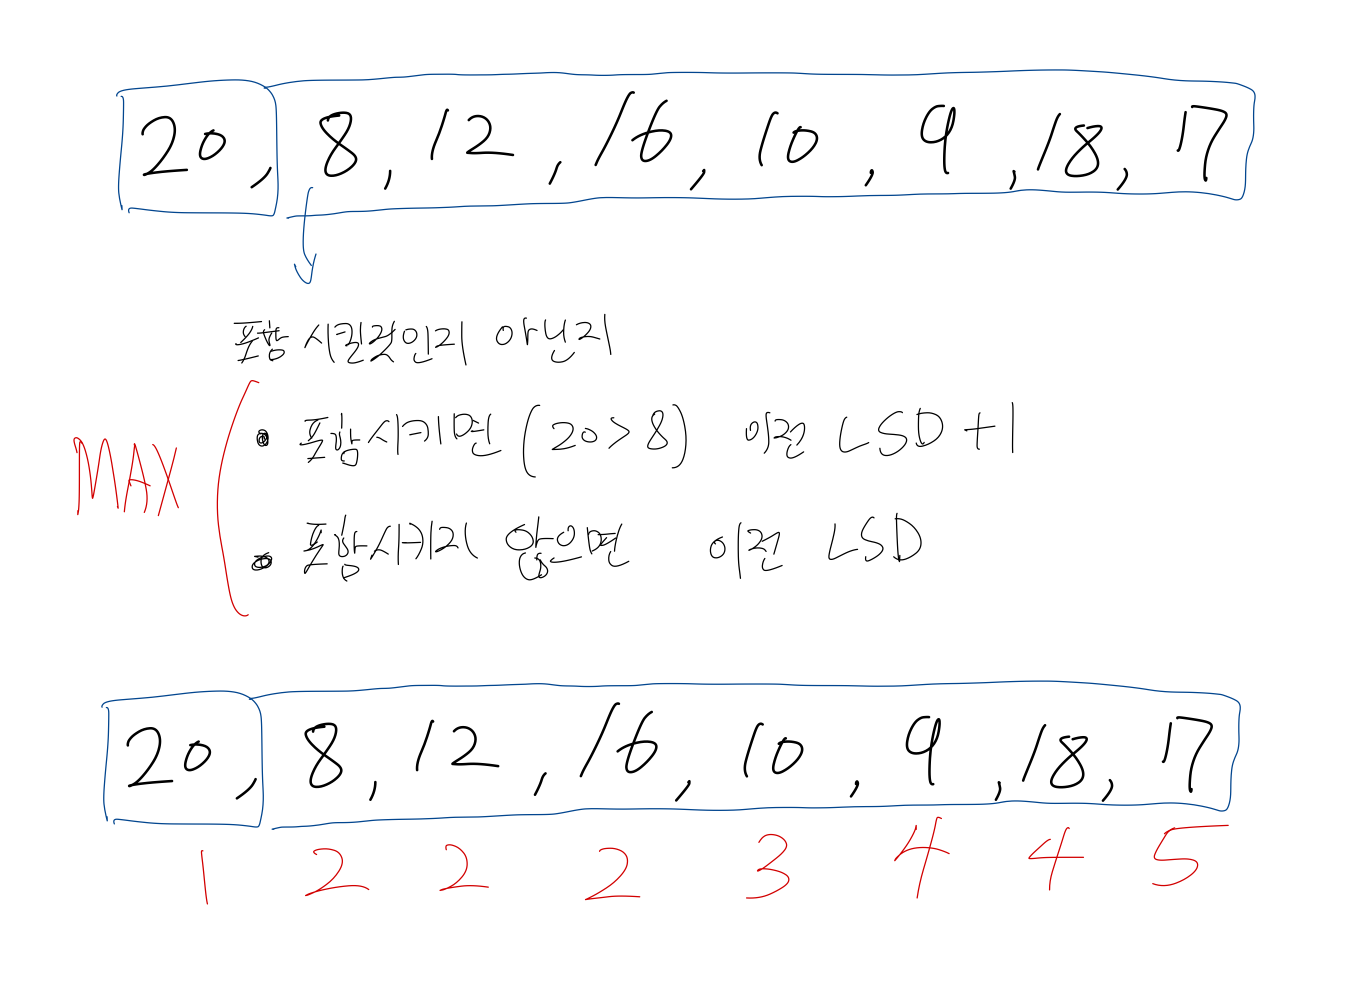 20, 8, 12, 16, 10, 9, 18, 7
포함 시킬것인지 아닌지
MAX
• 포함시키면 (20>8) 이전 LSD+1
• 포함시키지 않으면 이전 LSD
20, 8, 12, 16, 10, 9, 18, 7
1 2 2 2 3 4 4 5